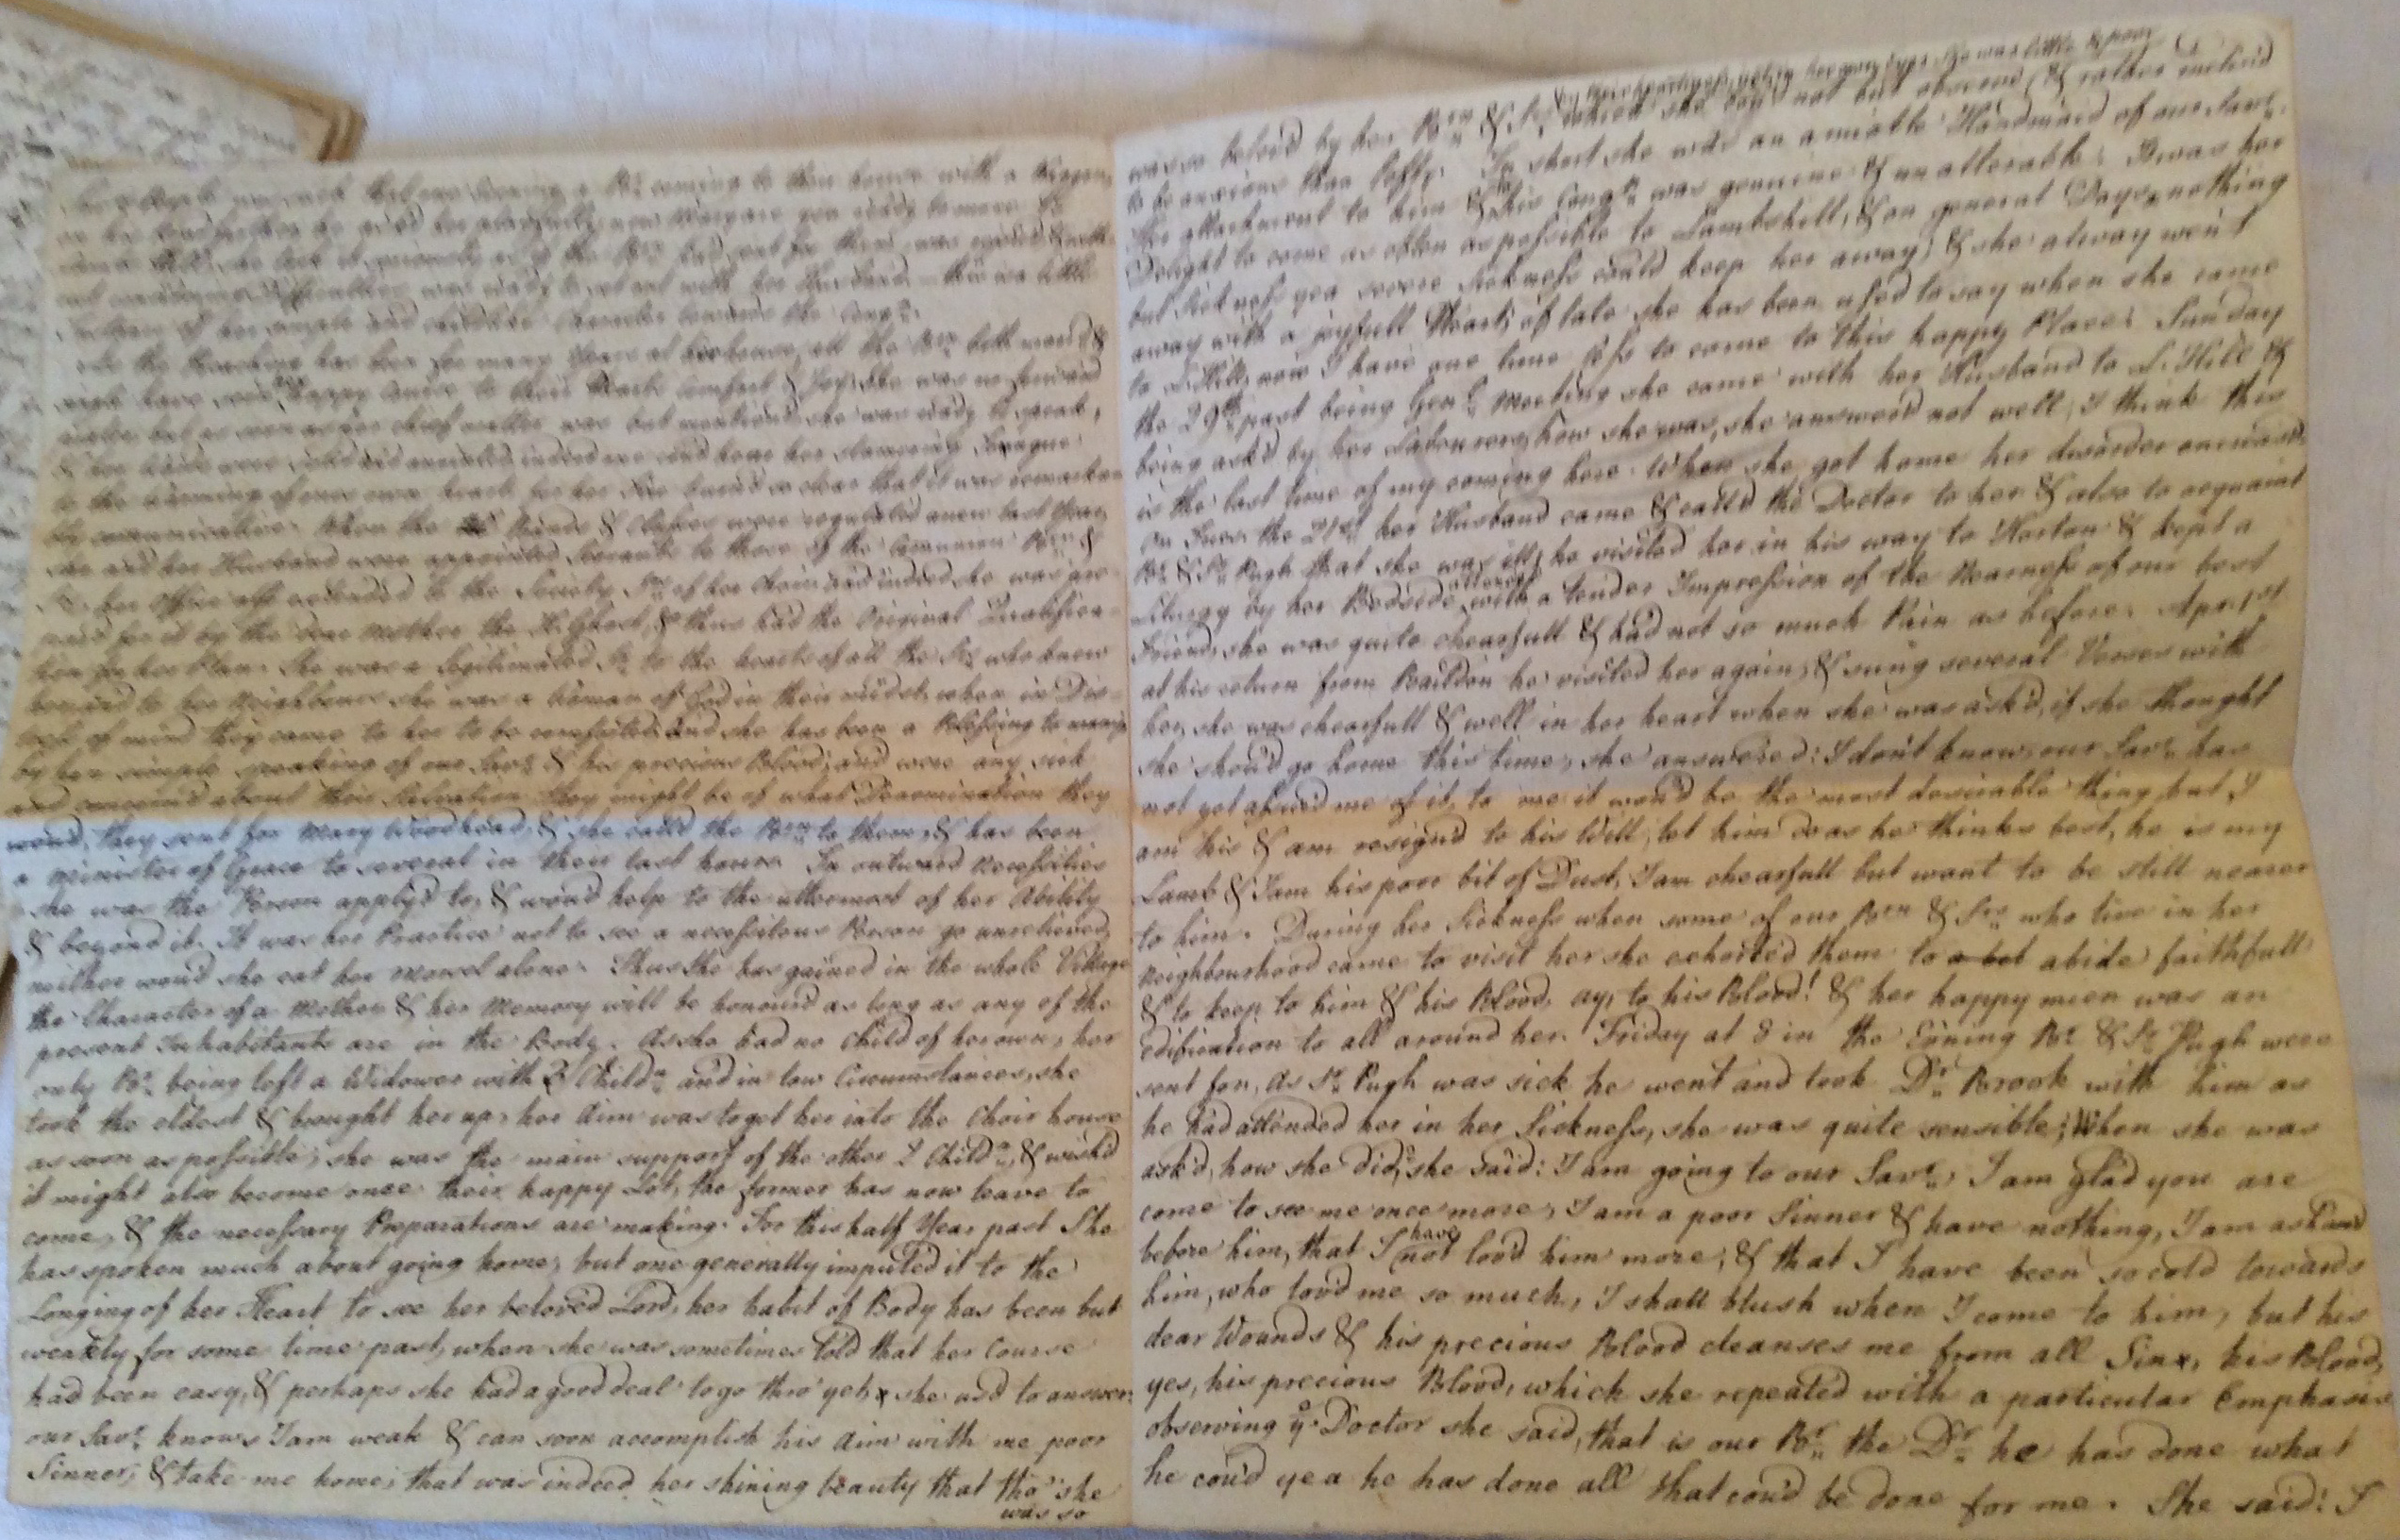 coming to their house with a
she took it
was ready to set out with her Husband
of her simple and childlike Character towards the Congn.
the Preaching has been for many Years at her house, all the Brn both
have
but as soon as our chief matter was but mention'd she was ready to speak,
one could hear her stamering Tongue
to the warming of ones own heart for her Fire burn'd so clear that it was remarkably
communicative. When the Bands & Classes were regulated anew last Year,
she and her Husband were appointed Servants to those of the Common Brn &
Srs. her Office also extended to the Society Srs of her Choir and indeed she was
for it by the dear Mother the H. Ghost, & thus had the Original Qualifica-
tion for her Plan. She was a legitimated Sr to the hearts of all the Srs who knew
to her Neighbours she was a Woman of God in their midst, when in Dis-
of mind they came to her to be comforted and she has been a Blessing to many
by her simple speaking of our Savr & his precious Blood; and were any sick
and concern'd about their Salvation they might be of what Denomination they
wou'd, they sent for Mary Woodhead, & she call'd the Brn to them, & has been
a Minister of Grace to several in their last hours. In outward Necessities
she was the Person apply'd to, & wou'd help to the uttermost of her Ability
& beyond it. It was her Practice not to see a necessitous Person go unrelieved,
neither wou'd she eat her Morsel alone. Thus she has gained in the whole Village
the Character of a Mother & her Memory will be honour'd as long as any of the
present Inhabitants are in the Body. As she had no Child of her own, her
only Br. being left a Widower with 3 Childn and in low Circumstances, she
took the eldest & brought her up, her Aim was to get her into the Choir house
as soon as possible; she was the main support of the other 2 Childn, & wish'd
it might also become once their happy Lot, the former has now leave to
come, & the necessary Preparations are making. For this half Year past She
has spoken much about going home, but one generally imputed it to the
Longing of her Heart to see her beloved Lord, her habit of Body has been but
weakly for some time past, when she was sometimes told that her Course
had been easy, & perhaps she had a good deal to go thro' yet, she us'd to answer:
our Savr knows I am weak & can soon accomplish his Aim with me poor
Sinner, & take me home; that was indeed her shining beauty that tho' she
was so
in her own eyes she was little & poor
was so belov'd by her Brn & Srs, which she cou'd not but observe, & rather inclin'd
to be anxious than lofty. In short she was an amiable Handmaid of our Savr.
The attachment to him & his Congn was genuine & unalterable. It was her
Delight to come as often as possible to Lambshill, & on general Days nothing
but Sickness yea severe Sickness could keep her away, & she alway went
away with a joyfull Heart, of late she has been used to say when she came
to L. Hill; now I have one time less to come to this happy Place. Sunday
the 29th past being Genl Meeting she came with her Husband to L. Hill &
being ask'd by her Labourers, how she was, she answer'd not well, I think this
is the last time of my coming here. When she got home her disorder encreas'd.
On Tues. the 31st her Husband came & call'd the Doctor to her & also to acquaint
Br. & Sr Pugh that she was ill, he visited her in his way to Horton & kept a
Liturgy by her Bedside attended with a tender Impression of the Nearness of our best
Friend, she was quite chearfull & had not so much Pain as before. Apr. 1st
at his return from Baildon he visited her again, & sung several Verses with
her, she was chearfull & well in her heart when she was ask'd, if she thought
she shou'd go home this time, she answered: I don't know, our Savr has
not yet assur'd me of it, to me it wou'd be the most desirable thing but I
am his & am resign'd to his Will, let him do as he thinks best, he is my
Lamb & I am his poor bit of Dust, I am chearfull but want to be still nearer
to him. During her Sickness when some of our Brn & Srs who live in her
Neighbourhood came to visit her she exhorted them to a bet abide faithfull
& to keep to him & his Blood, ay, to his Blood! & her happy mien was an
edification to all around her. Friday at 8 in the Evning Br. & Sr Pugh were
sent for, as Sr. Pugh was sick he went and took Dr. Brook with him as
he had attended her in her Sickness, she was quite sensible; When she was
ask'd, how she did, she said: I am going to our Savr, I am glad you are
come to see me once more, I am a poor Sinner & have nothing, I am asham'd
before him, that I have not lov'd him more, & that I have been so cold towards
him, who lov'd me so much, I shall blush when I come to him, but his
dear Wounds & his precious Blood cleanses me from all Sin, his Blood,
yes, his precious Blood, which she repeated with a particular Emphasis
observing ye Doctor she said, that is our Br. the Dr. he has done what
he cou'd yea he has done all that cou'd be done for me. She said: I